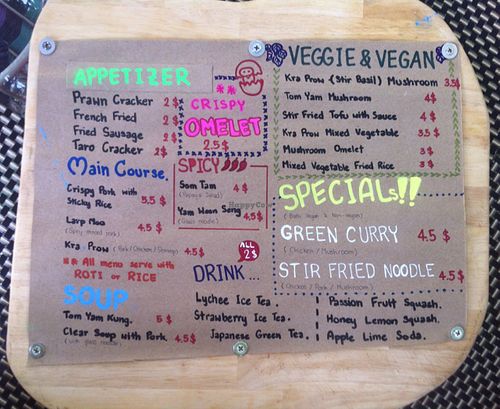 APPETIZER
Prawn Cracker 2$
French Fried 2$
Fried Sausage 2$
Taro Cracker 2$
CRISPY
OMELET
2.5$
Main Course.
Crispy Pork with
Sticky Rice 5.5$
Larp Moo 4.5$
(Spicy minced pork)
Kra Prow (Pork/Chicken/Shrimp) 4.5$
** All menu serve with
ROTI or RICE
SOUP
Tom Yam Kung. 5$
Clear Soup with Pork. 4.5$
(with glass noodle)
SPICY
Som Tam 4$
(Papaya Salad)
Yam Woon Seng 4.5$
(Glass noodle)
DRINK...
ALL
2$
Lychee Ice Tea.
Strawberry Ice Tea.
Japanese Green Tea.
Passion Fruit Squash.
Honey Lemon Squash.
Apple Lime Soda.
VEGGIE & VEGAN
Kra Prow (Stir Basil) Mushroom 3.5$
Tom Yam Mushroom 4$
Stir Fried Tofu with Sauce 4$
Kra Prow Mixed Vegetable 3.5$
Mushroom Omelet 3$
Mixed Vegetable Fried Rice 3$
SPECIAL!!
(Both Vegan & Non-vegan)
GREEN CURRY 4.5$
(Chicken / Mushroom)
STIR FRIED NOODLE 4.5$
(Chicken / Pork / Mushroom)